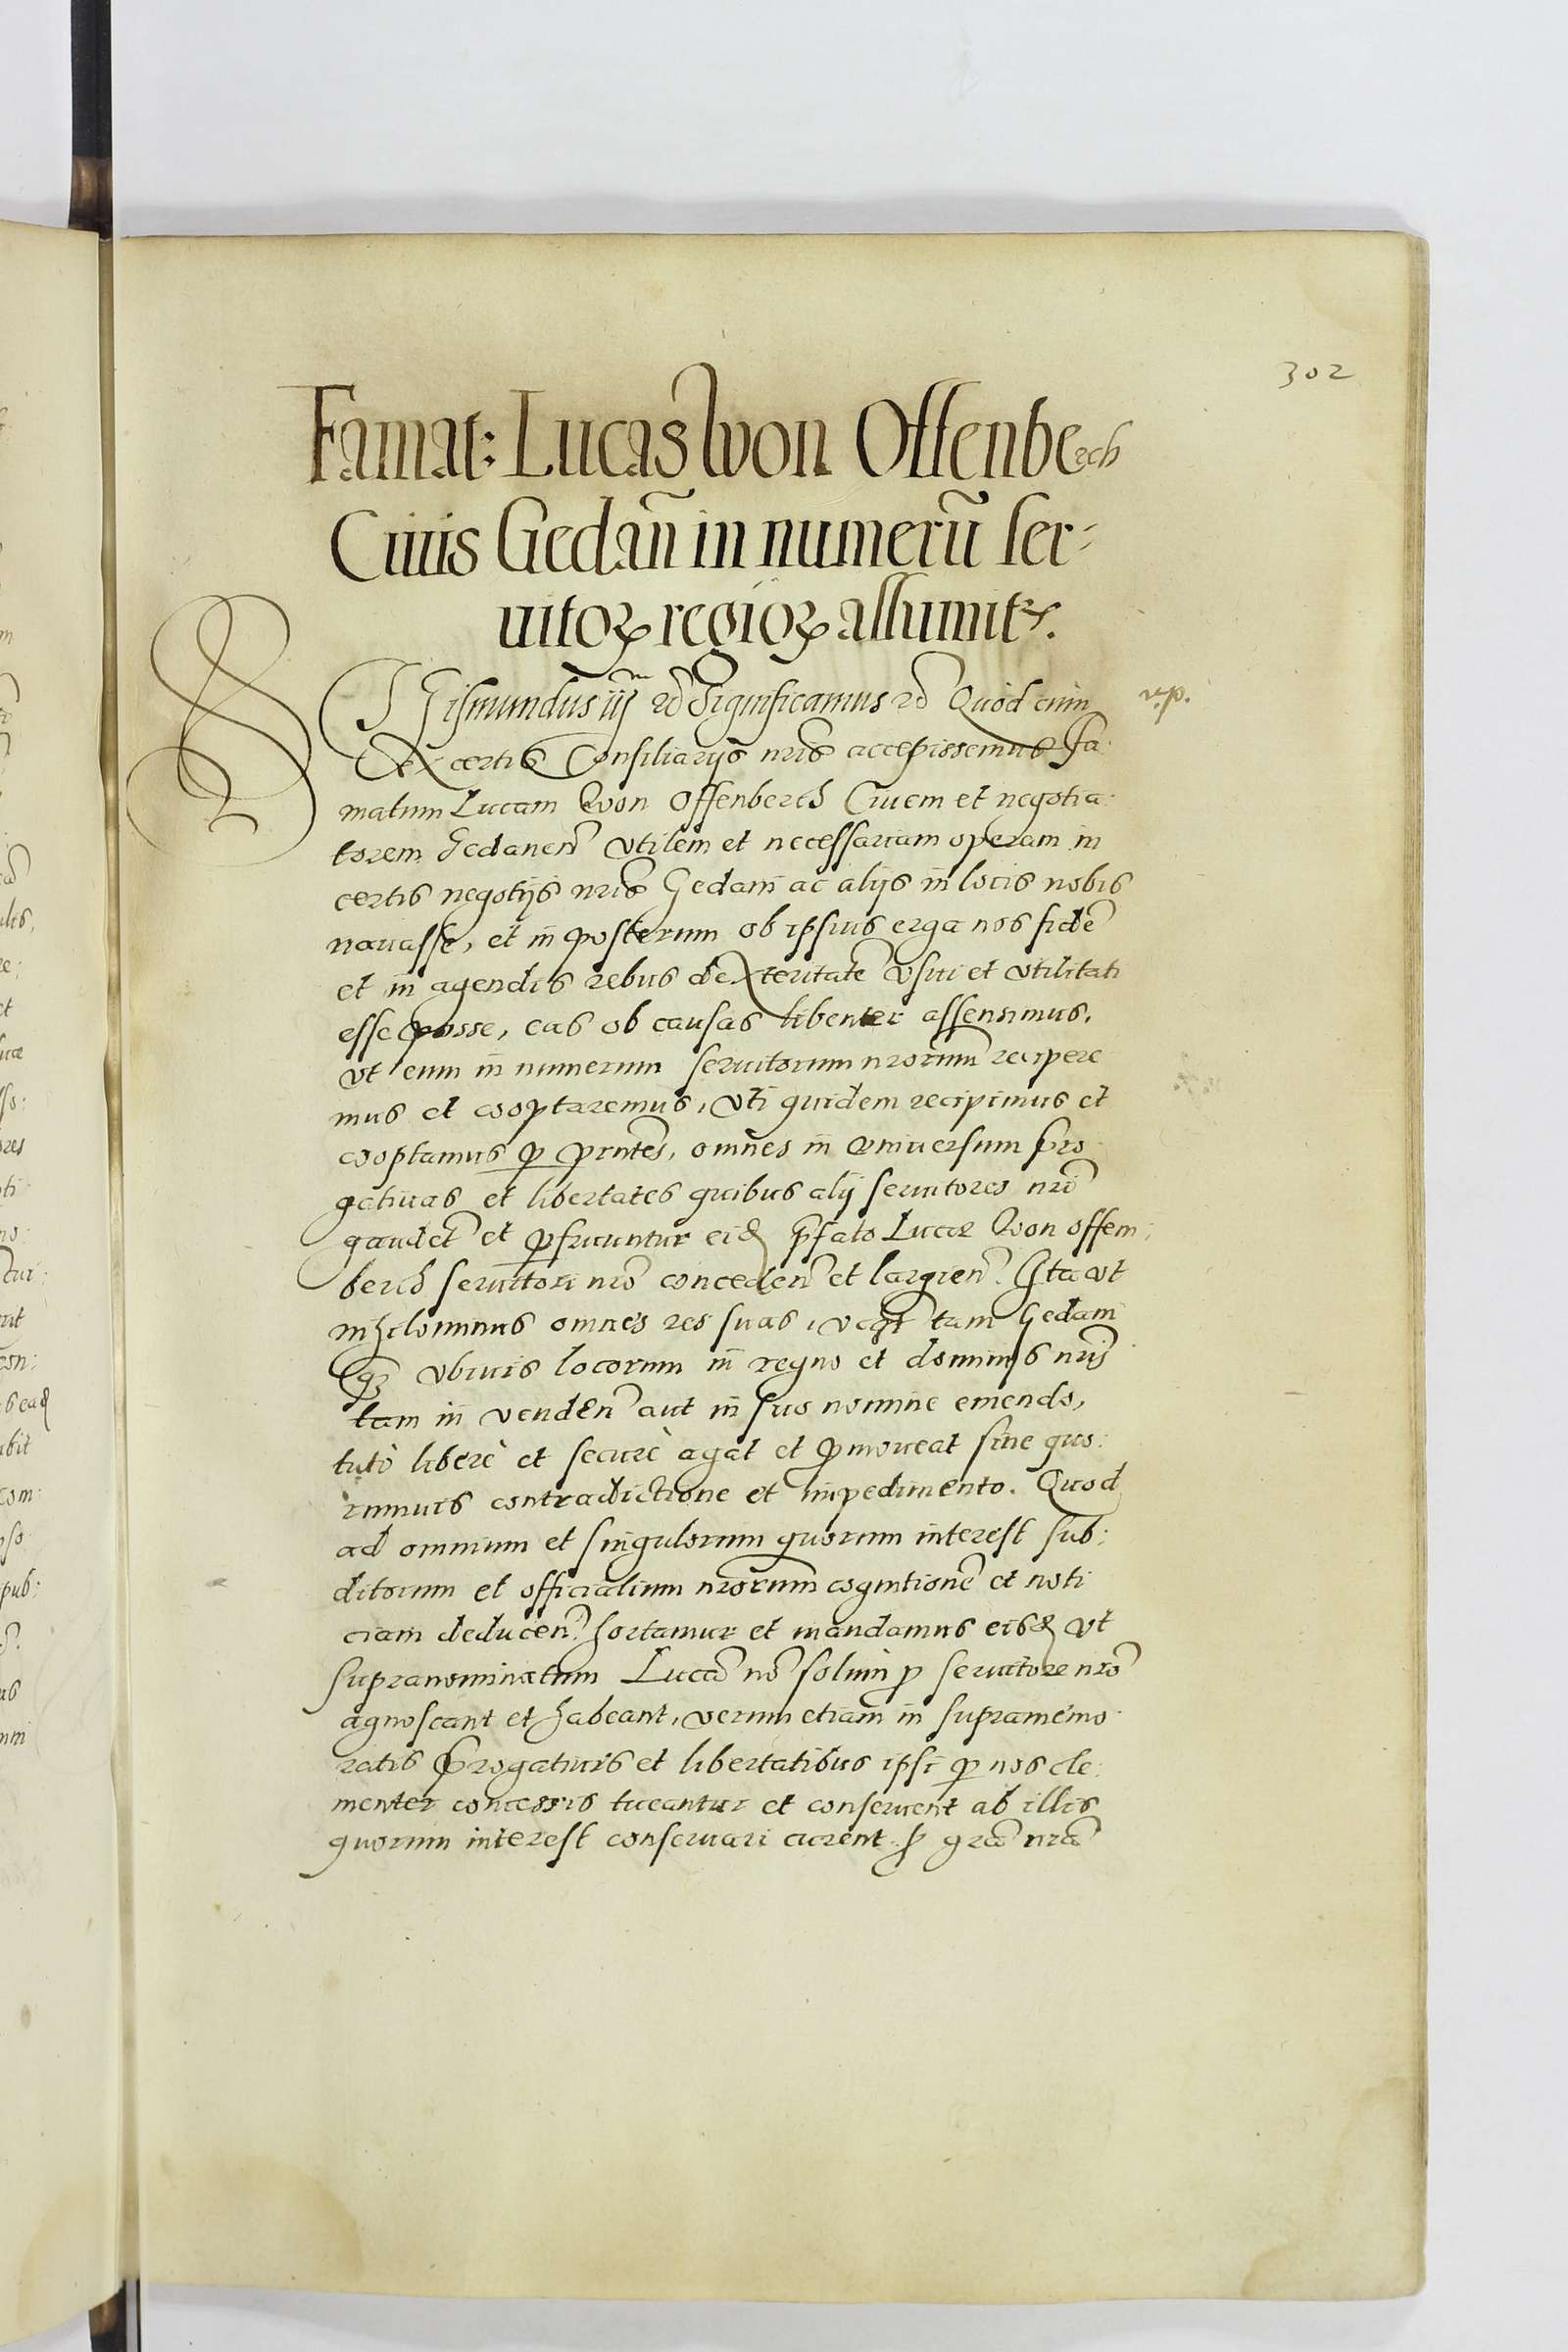 302
Famat: Lucas Von Offenberch
Ciuis Gedan̄ in numerū ser-
uitoꝝ regioꝝ assumitr.
SIGismundus iij ꝛc Significamus ꝛc Quod cum
ex certis Consiliarijs nr̃is accepissemus Fa:
matum Lucam Von Offenberch Ciuem et negotia:
torem Gedanen̄ vtilem et necessariam operam in
certis negotijs nr̃is Gedani ac alijs in locis nobis
nauasse, et in posterum ob ipsius erga nos fidē
et in agendis rebus dexteritatē vsui et vtilitati
esse posse, eas ob causas libenter assensimus,
vt eum in numerum seruitorum nr̃orum recipere
mus et cooptaremus, vti quidem recipimus et
cooptamus ꝑ pr̃ntes, omnes in vniuersum Prꝰ
gatiuas et libertates quibus alij seruitores nr̃i
gaudēt et ꝑfruuntur eidꝫ p̃fato Lucæ Von Offem:
berch seruitori nr̃o conceden̄ et largien̄. Ita vt
nihilominus omnes res suas, tam Gedani
quā vbiuis locorum in regno et dominijs nr̃is
tam in venden̄ aut in suo nomine emendo,
tutò liberè et securè agat et ꝓmoueat sine quo:
rumuis contradictione et impedimento. Quod
ad omnium et singulorum quorum interest sub:
ditorum et officialium nr̃orum cognitionē et noti
ciam deducen̄. hortamur et mandamus eisdꝫ vt
supranominatum Lucā nō solum ꝓ seruitore nr̃o
agnoscant et habeant, verum etiam in supramemo
ratis Prꝰgatiuis et libertatibus ipsi ꝑ nos cle:
menter concessis tueantur et conseruent ab illis
quorum interest conseruari curent ꝓ grā nr̃ā